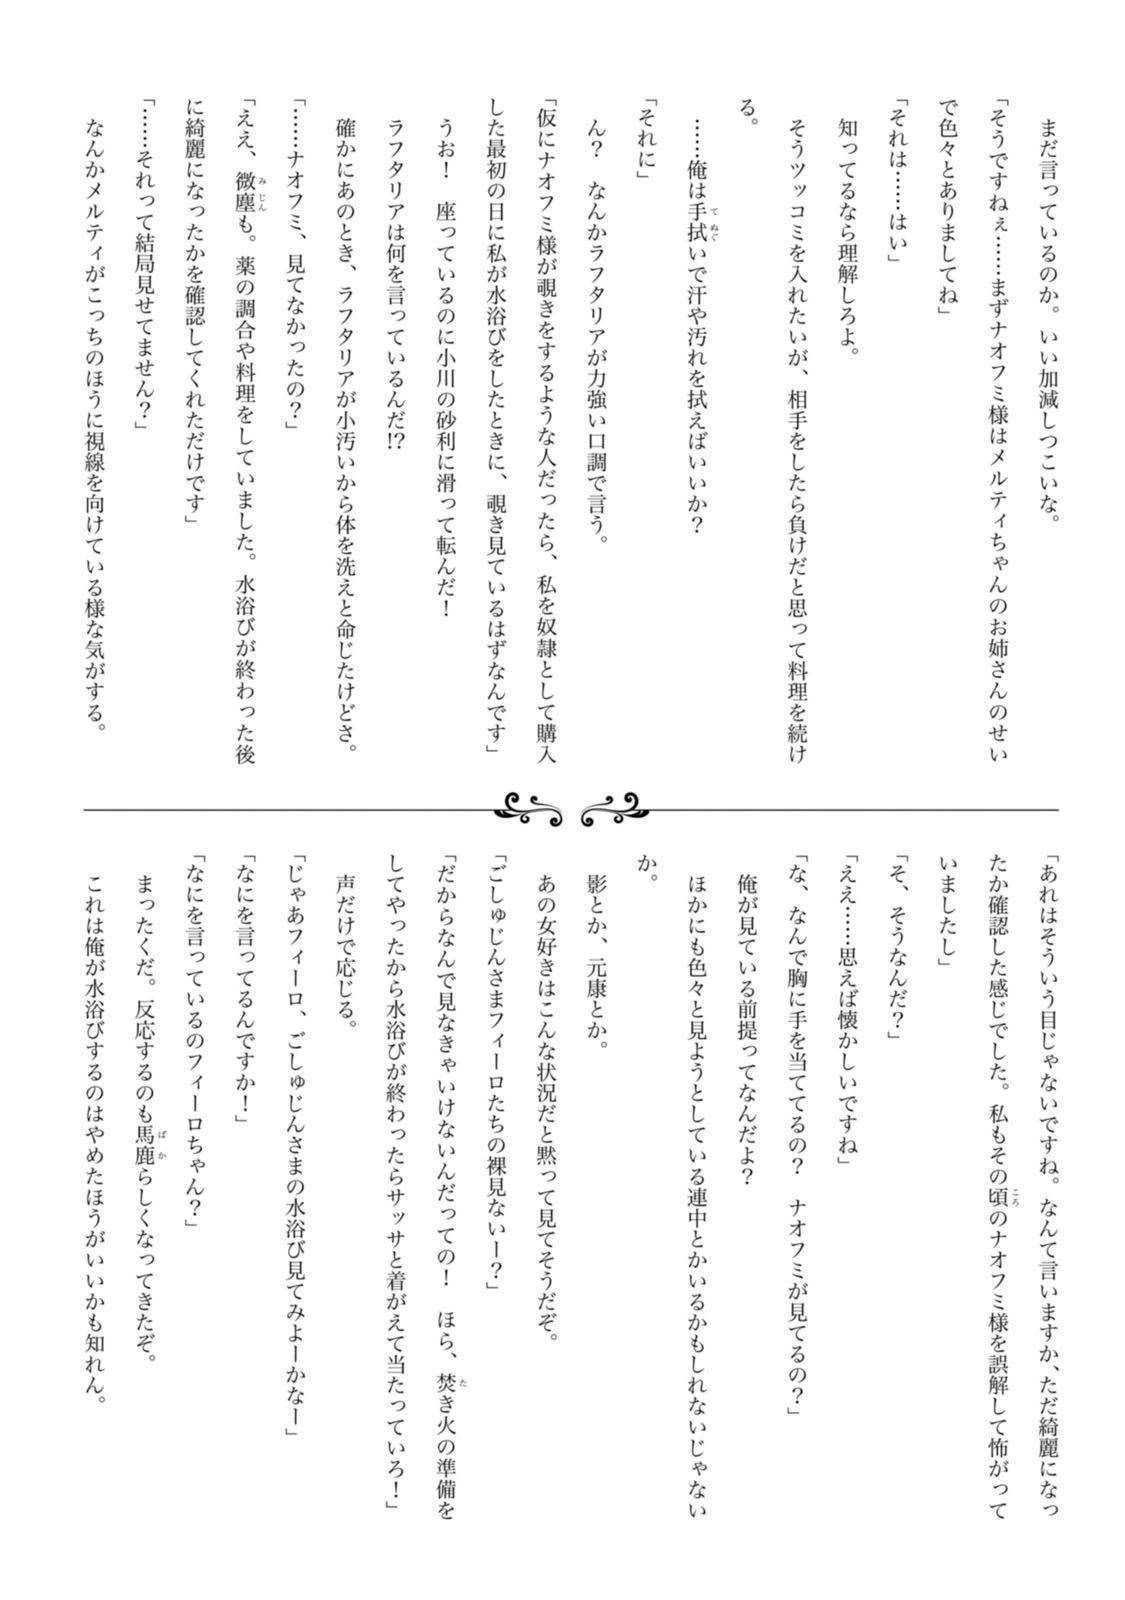 まだ言っているのか。いい加減しつこいな。
「そうですねぇ……まずナオフミ様はメルティちゃんのお姉さんのせい
で色々とありましてね」
「それは……はい」
知ってるなら理解しろよ。
そうツッコミを入れたいが、相手をしたら負けだと思って料理を続け
る。
……俺は手拭いで汗や汚れを拭えばいいか？
「それに」
ん？　なんかラフタリアが力強い口調で言う。
「仮にナオフミ様が覗きをするような人だったら、私を奴隷として購入
した最初の日に私が水浴びをしたときに、覗き見ているはずなんです」
うお！　座っているのに小川の砂利に滑って転んだ！
ラフタリアは何を言っているんだ!?
確かにあのとき、ラフタリアが小汚いから体を洗えと命じたけどさ。
「……ナオフミ、見てなかったの？」
「ええ、微塵も。薬の調合や料理をしていました。水浴びが終わった後
に綺麗になったかを確認してくれただけです」
「……それって結局見せてません？」
なんかメルティがこっちのほうに視線を向けている様な気がする。
「あれはそういう目じゃないですね。なんて言いますか、ただ綺麗になっ
たか確認した感じでした。私もその頃のナオフミ様を誤解して怖がって
いましたし」
「そ、そうなんだ？」
「ええ……思えば懐かしいですね」
「な、なんで胸に手を当ててるの？　ナオフミが見てるの？」
俺が見ている前提ってなんだよ？
ほかにも色々と見ようとしている連中とかいるかもしれないじゃない
か。
影とか、元康とか。
あの女好きはこんな状況だと黙って見てそうだぞ。
「ごしゅじんさまフィーロたちの裸見ないー？」
「だからなんで見なきゃいけないんだっての！　ほら、焚き火の準備を
してやったから水浴びが終わったらサッサと着がえて当たっていろ！」
声だけで応じる。
「じゃあフィーロ、ごしゅじんさまの水浴び見てみよーかなー」
「なにを言ってるんですか！」
「なにを言っているのフィーロちゃん？」
まったくだ。反応するのも馬鹿らしくなってきたぞ。
これは俺が水浴びするのはやめたほうがいいかも知れん。